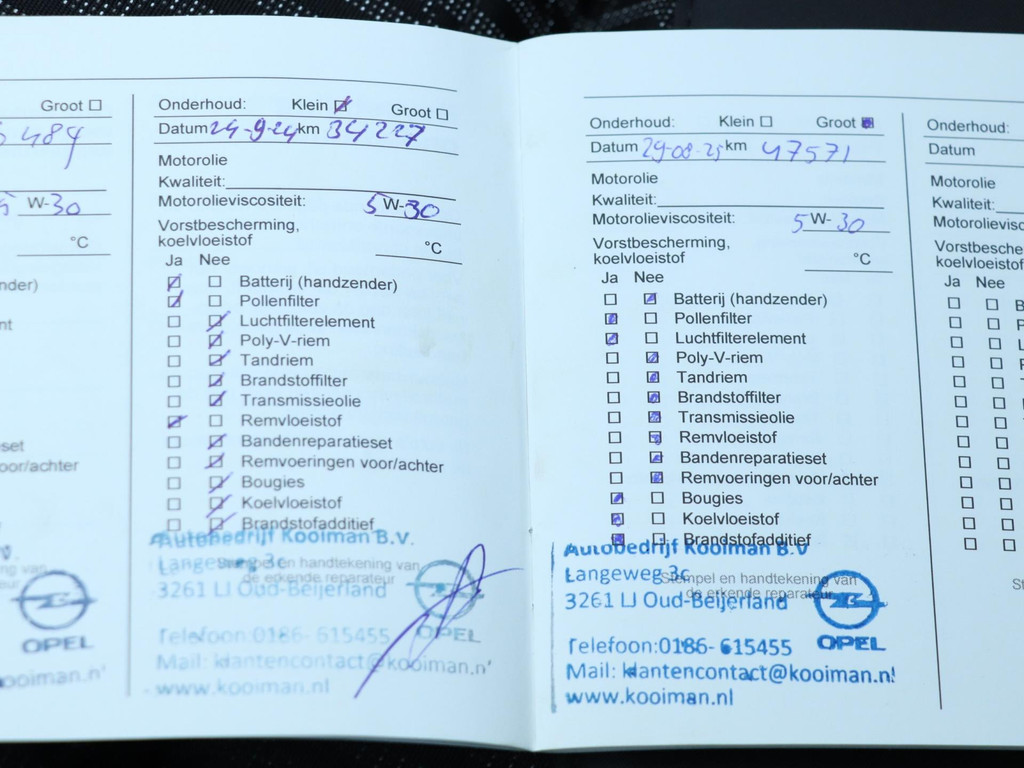 Groot
484
W-30
°C
nder)
nt
sset
oor/achter
OPEL
ooiman.n
Onderhoud: Klein Groot
Datum 24-9-24 km 34227
Motorolie
Kwaliteit:
Motorolieviscositeit: 5 W-30
Vorstbescherming,
koelvloeistof °C
Ja Nee
Batterij (handzender)
Pollenfilter
Luchtfilterelement
Poly-V-riem
Tandriem
Brandstoffilter
Transmissieolie
Remvloeistof
Bandenreparatieset
Remvoeringen voor/achter
Bougies
Koelvloeistof
Brandstofadditief
Autobedrijf Kooiman B.V.
Langeweg 3c
Stempel en handtekening van
de erkende reparateur
3261 LJ Oud-Beijerland
Telefoon:0186-615455
OPEL
Mail: klantencontact@kooiman.n
www.kooiman.nl
Onderhoud: Klein Groot
Datum 29-08-25 km 47571
Motorolie
Kwaliteit:
Motorolieviscositeit: 5 W-30
Vorstbescherming,
koelvloeistof °C
Ja Nee
Batterij (handzender)
Pollenfilter
Luchtfilterelement
Poly-V-riem
Tandriem
Brandstoffilter
Transmissieolie
Remvloeistof
Bandenreparatieset
Remvoeringen voor/achter
Bougies
Koelvloeistof
Brandstofadditief
Autobedrijf Kooiman B.V
Langeweg 3c
Stempel en handtekening van
de erkende reparateur
3261 LJ Oud-Beijerland
Telefoon:0186-615455
OPEL
Mail: klantencontact@kooiman.nl
www.kooiman.nl
Onderhoud:
Datum
Motorolie
Kwaliteit:
Motorolievisc
Vorstbesche
koelvloeistof
Ja Nee